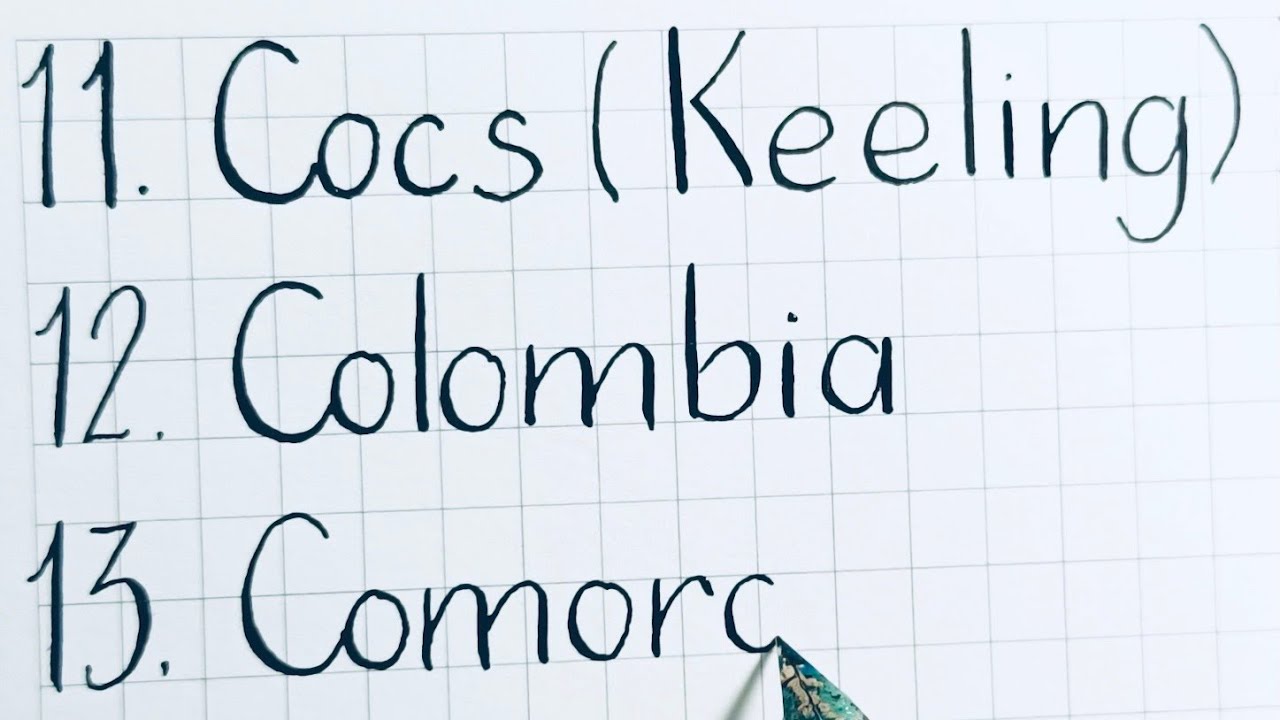 11. Cocs (Keeling)
12. Colombia
13. Comorc